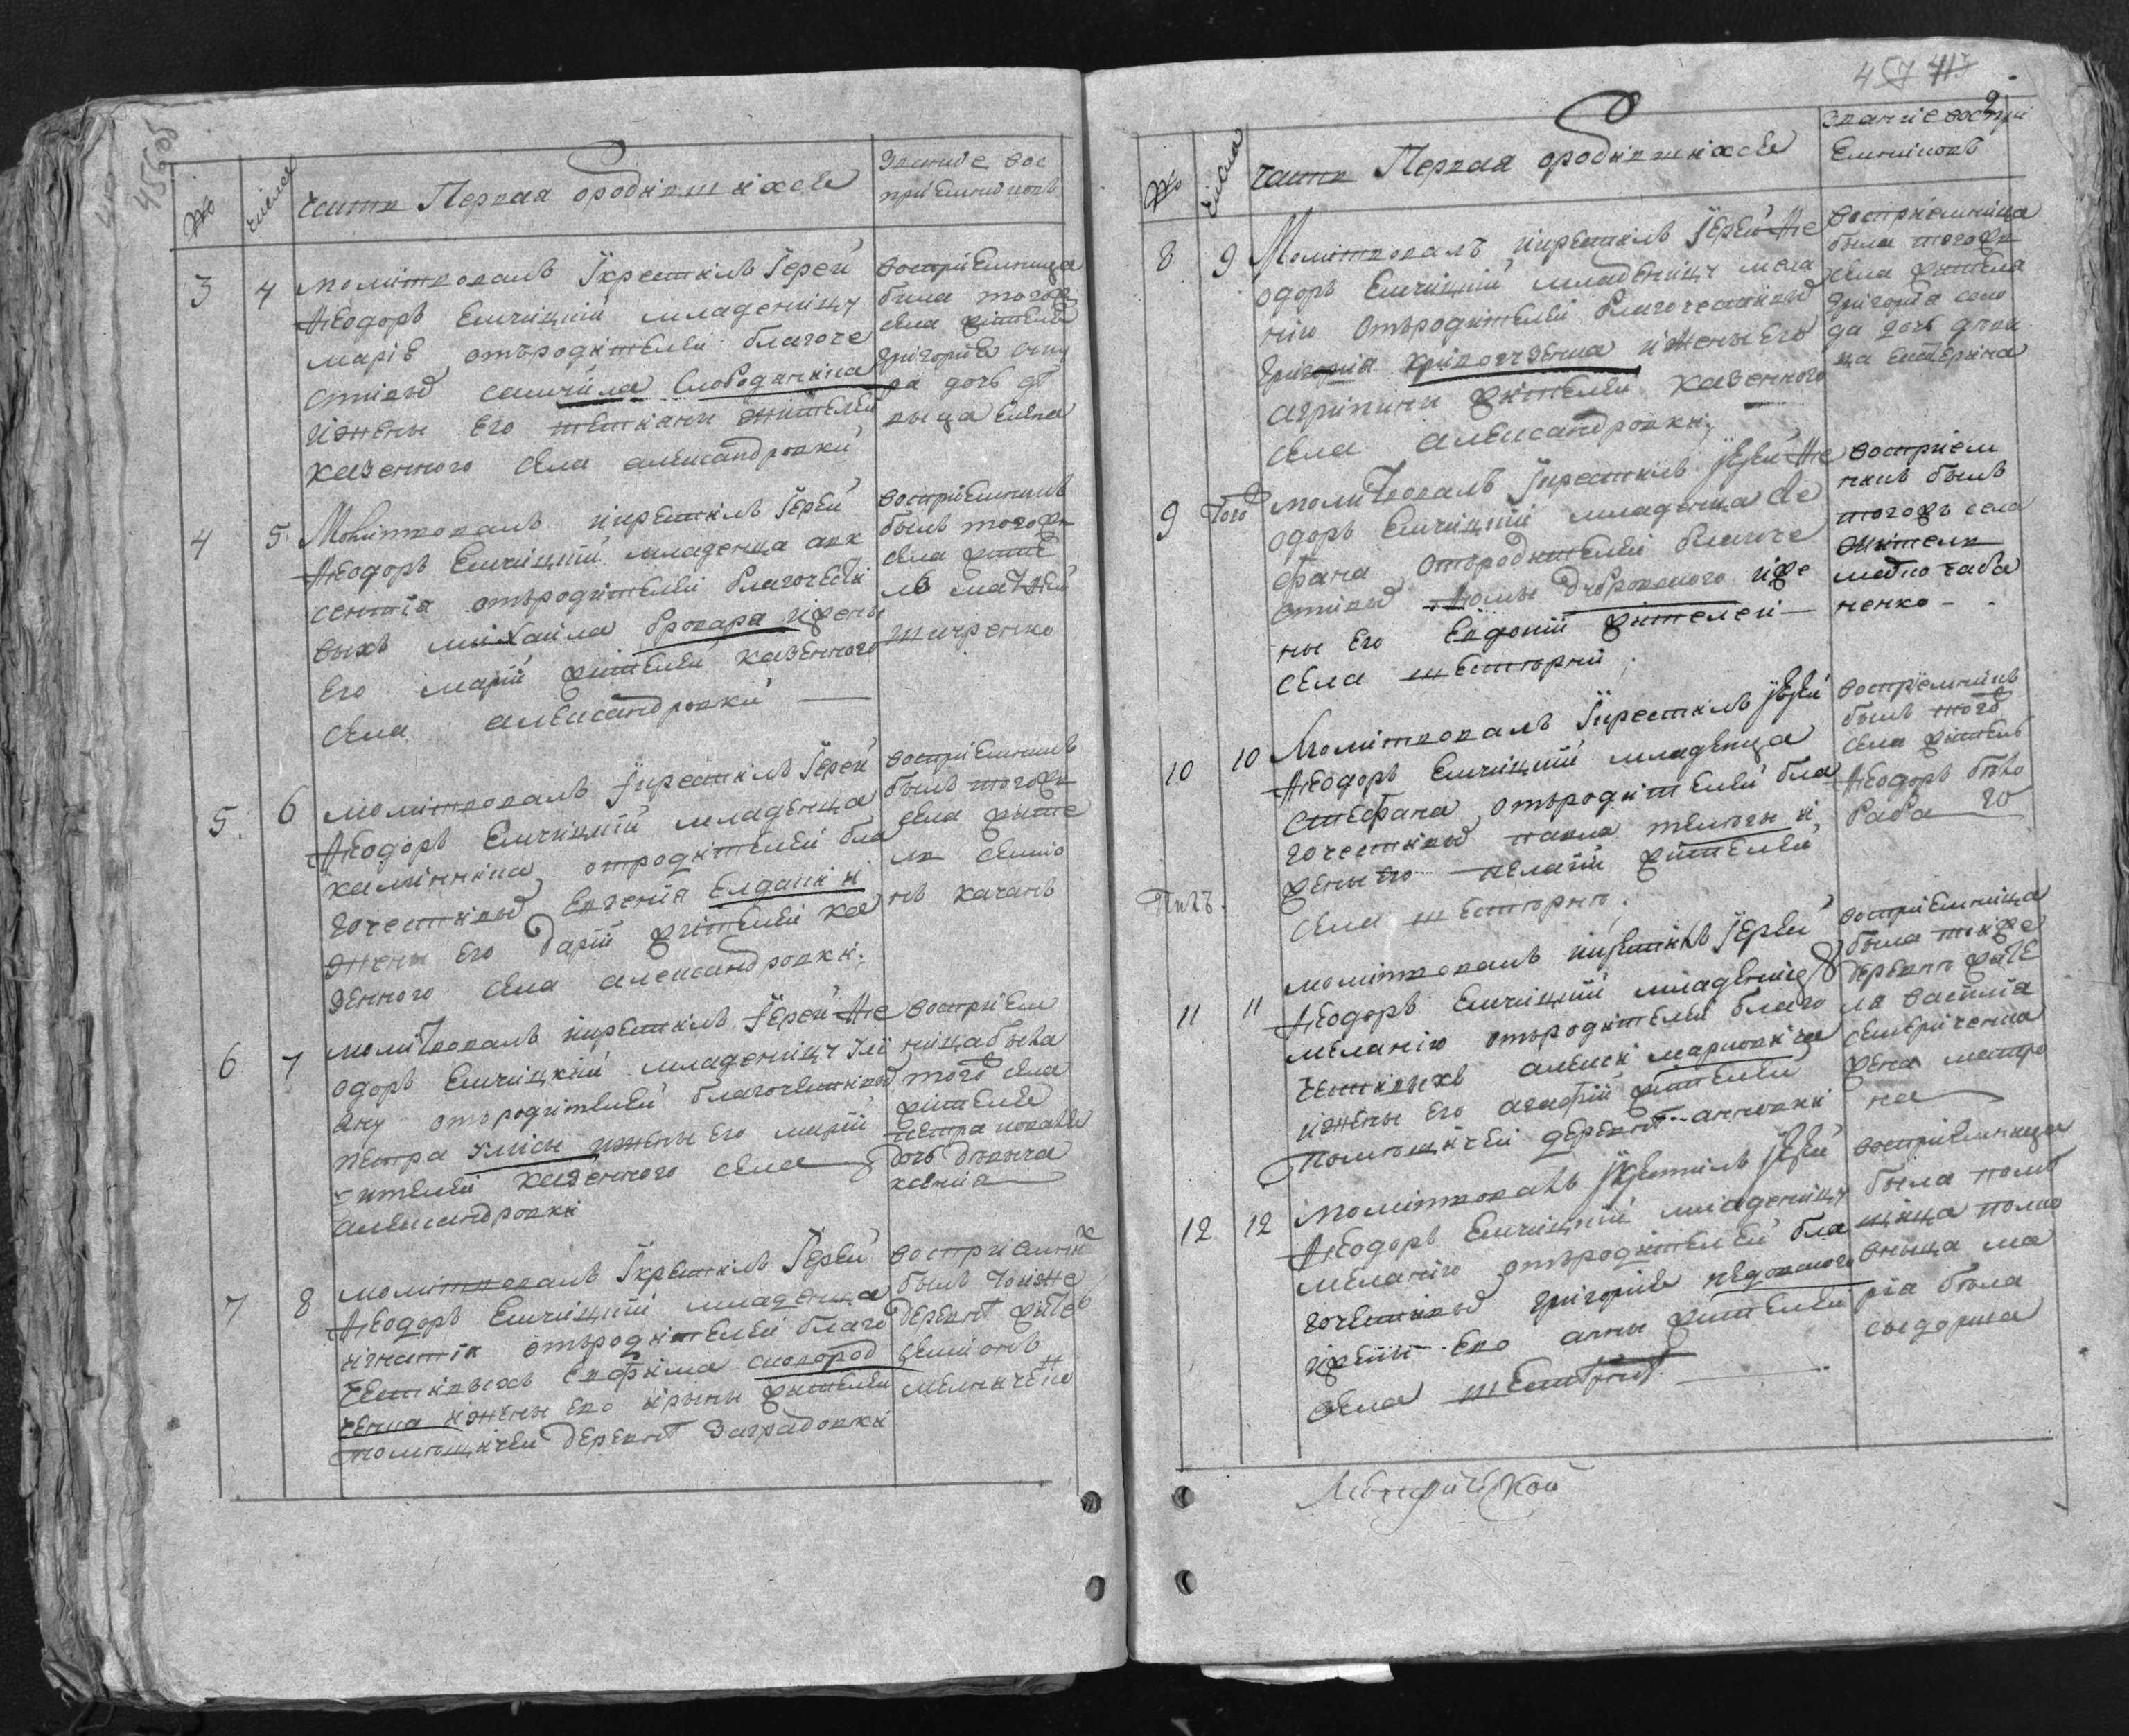 456об
№
числа
часть Первая ородившихся
Звание вос
приемниковъ
3 4
молитвовалъ Ікрестилъ Іерей
Ѳеодоръ Емчицкій младеницу
марію отъродителей благоче
стивы̃ самуила Слободяника
ижены его тетяны жителей
казенного села александровки
восприемница
была тогожъ
села жителя
григория
ра дочь дѣ
вица елена
4 5
Молитвовалъ икрестилъ Іерей
Ѳеодоръ Емчицкій младенца авк
сентія отъродителей благочести
выхъ михаила бровара ижены
Его маріи жителей казенного
села александровки
восприемникъ
былъ тогожъ
села жите
ль матвей
шинренко
5. 6
молитвовалъ Ікрестилъ Іерей
Ѳеодоръ Емчицкій младенца
каминника отродителей бла
гочестивы̃ Евгенія Елдашки и
жены его Даріи жителей ка
зенного села александровки;
восприемникъ
былъ тогожъ
села жите
ль семіо
нъ качанъ
6 7
молитвовалъ икрестилъ Іерей Ѳе
одоръ Емчицкій младеницу Іулі
яну отъродителей благочестивы̃
петра ижены его маріи
жителей казенного села
александровки
восприем
ница была
того села
жителя
петра коваля
дочь дѣвица
ксенія
7 8
молитвовалъ Ікрестилъ Іерей
Ѳеодоръ Емчицкій младенца
игнатія отъродителей благо
честивыхъ Евфима сковород
ченка ижены его ирины жителей
помѣщичей деревнѣ Заградовки
восприемни́к
былъ тойже
деревнѣ жите́ль
семіонъ
мелниченко
457 413
2.
№
числа
часть Первая ородившихся
Звание воспри
Емниковъ
8 9
Молитвовалъ икрестилъ Іерей Ѳе
одоръ Емчицкій младеницу мела
нію Отъродителей Благочестивы̃
Григорія криворченка ижены Его
агрипины жителей казенного
села александровки;
восприемница
была тогожъ
села жителя
григорія соло
да дочь дѣви
ца екатерина
9 того̃
молитвовалъ Ікрестилъ Іерей Ѳе
одоръ Емчицкій младенца сте
фана отъродителей благоче
стивы̃ Ѳомы Дубровского иже
ны его Евдокіи жителей
села шестѣрни;
восприем
никъ былъ
тогожъ села
житель
павло чаба
ненко
10 10
Молитвовалъ Ікрестилъ Іерей
Ѳеодоръ Емчицкій младенца
стефана отъродителей бла
гочестивы̃ павла телюгы и
жены его пелагіи жителей
села шестѣрнѣ.
восприемникъ
былъ того
села житель
Ѳеодоръ бѣло
баба
11 11
молитвовалъ икрестилъ Іерей
Ѳеодоръ Емчицкій младеницу
меланію отъродителей благо
честивыхъ алексѣ марковича
ижены его агафіи жителей
помѣщичей деревнѣ анновки
восприемница
была тойже
деревни жите
ля василія
семериченка
жена матро
на
12 12
Молитвовалъ Ікрестилъ Іерей
Ѳеодоръ Емчицкій младеницу
меланію отъродителей бла
гочестивы̃ григорія недовского
ижены его анны жителей
села шестѣрнѣ.
восприемница
была помѣ
щица полко
вница ма
рія
сидорова